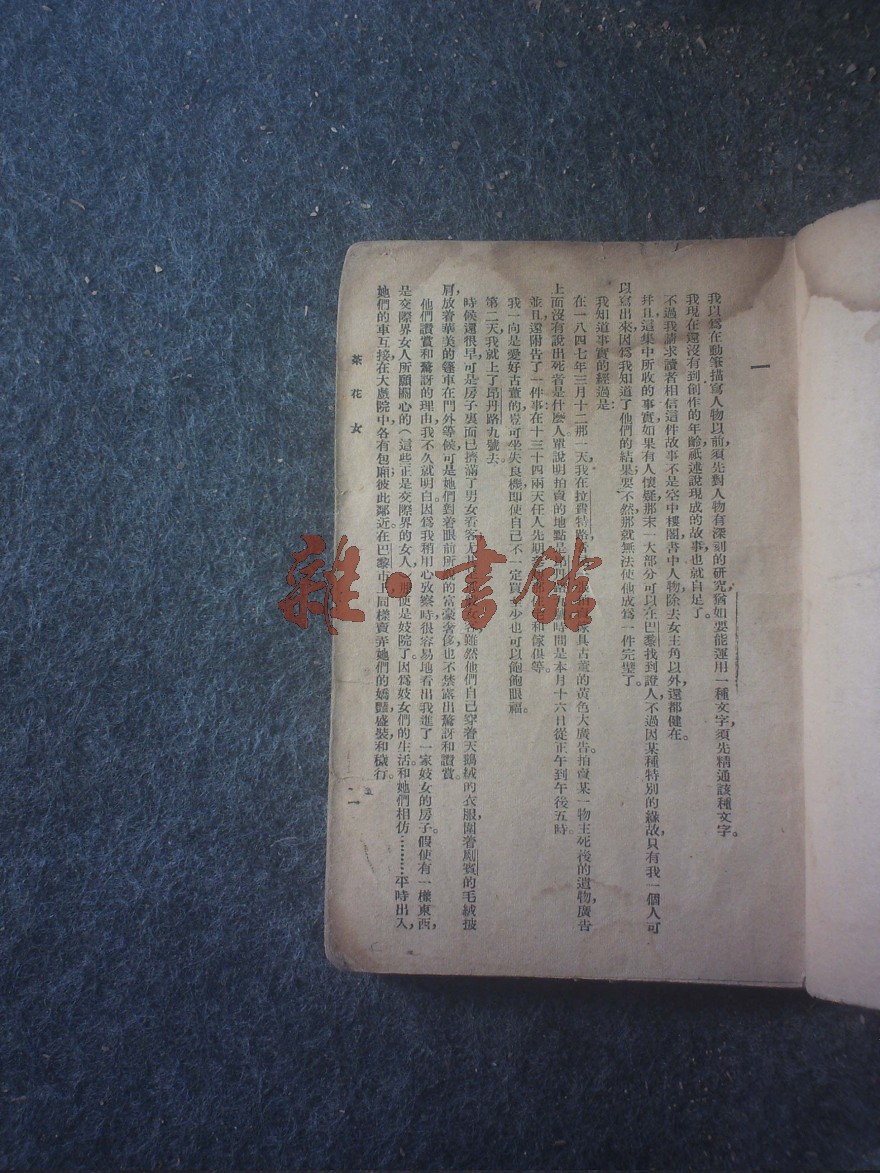 一
我以爲在動筆描寫人物以前,須先對人物有深刻的研究,猶如要能運用一種文字,須先精通該種文字。
我現在還沒有到創作的年齡,祇述說現成的故事,也就自足了。
不過我請求讀者相信這件故事不是空中樓閣,書中人物,除去女主角以外,還都健在。
幷且這集中所收的事實,如果有人懷疑,那末一大部分可以在巴黎找到證人,不過因某種特別的緣故,只有我一個人可
以寫出來,因爲我知道了他們的結果;要不然,那就無法使他成爲一件完璧了。
我知道事實的經過是:
在一八四七年三月十二那一天,我在拉費特路 傢具古董的黃色大廣告。拍賣某一物主死後的遺物,廣告
上面沒有說出死者是什麼人,單說明拍賣的地點是 時間是本月十六日從正午到午後五時。
並且還附告了一件事,在十三十四兩天,任人先期 和傢俱等。
我一向是愛好古董的,豈可坐失良機,卽使自己不一定買,至少也可以飽飽眼福。
第二天,我就上了昂丹路九號去。
時候還很早,可是房子裏面已擠滿了男女看客, 雖然他們自己穿着天鵝絨的衣服,圍着 的毛絨披
肩,放着華美的篷車在門外等候,可是她們對着眼前所 的富豪奢侈,也不禁露出驚訝和讚賞。
他們讚賞和驚訝的理由,我不久就明白。因爲我稍用心攷察時,很容易地看出我進了一家妓女的房子。假使有一樣東西,
是交際界女人所願關心的(這些正是交際界的女人, 便是妓院了。因爲妓女們的生活。和她們相仿………平時出入,
她們的車互接,在大戲院中各有包廂,彼此鄰近。在巴黎市上同樣賣弄她們的嬌豔,盛裝和穢行。
茶花女
二一
雜·書館